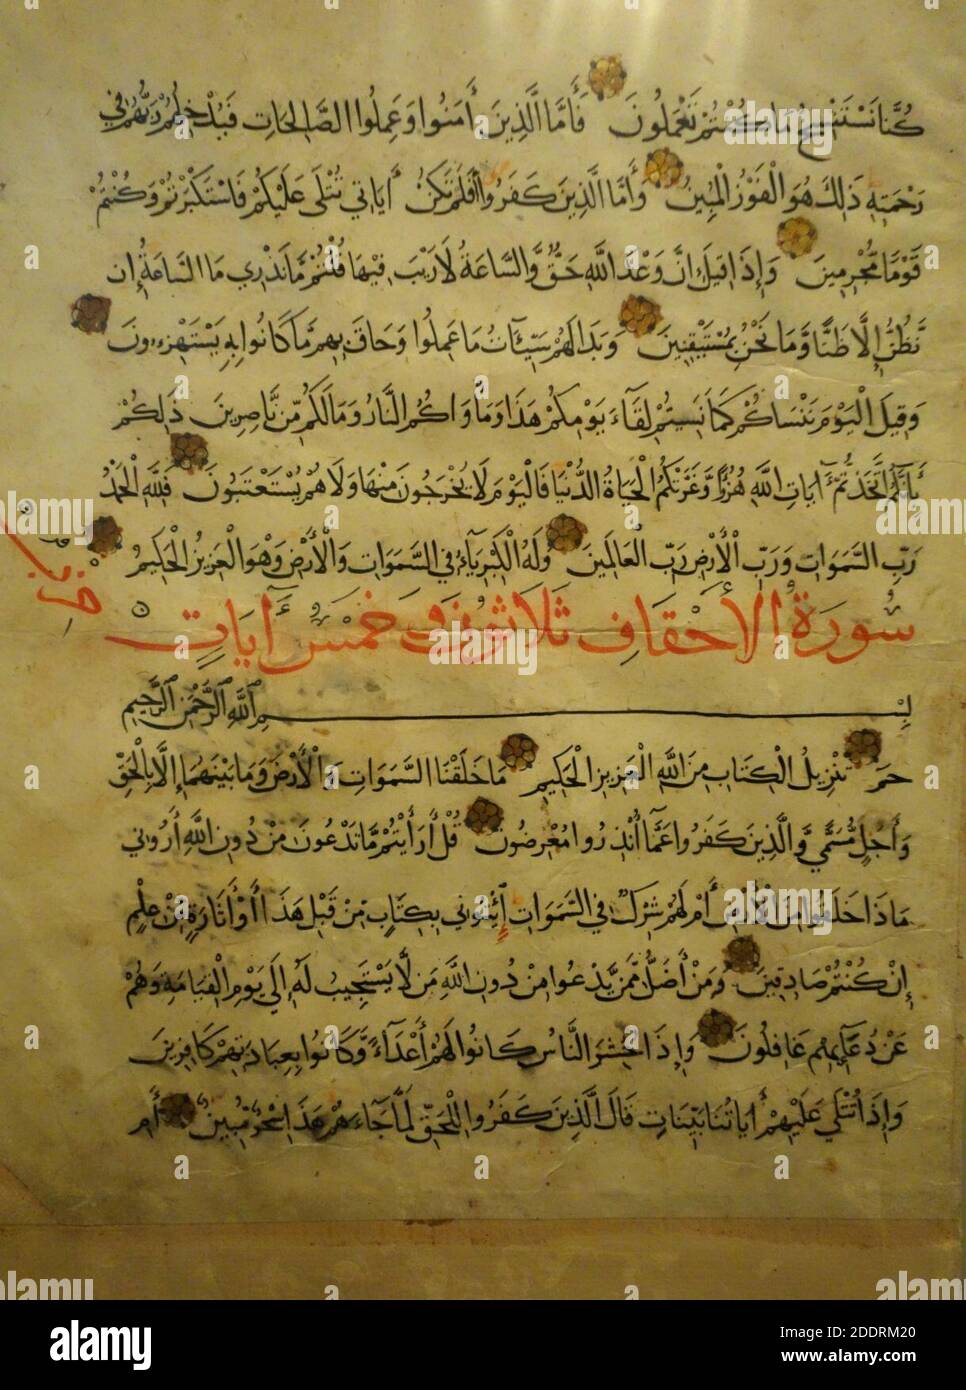 كُنَّا نَسْتَنْسِخُ مَا كُنْتُمْ تَعْمَلُونَ فَأَمَّا الَّذِينَ أَمَنُوا وَعَمِلُوا الصَّالِحَاتِ فَيُدْخِلُهُمْ رَبُّهُمْ فِي
رَحْمَتِهِ ذَلِكَ هُوَ الْفَوْزُ الْمُبِينُ وَأَمَّا الَّذِينَ كَفَرُوا أَفَلَمْ تَكُنْ أَيَاتِي تُتْلَى عَلَيْكُمْ فَاسْتَكْبَرْتُمْ وَكُنْتُمْ
قَوْمًا مُّجْرِمِينَ وَإِذَا قِيلَ إِنَّ وَعْدَ اللَّهِ حَقٌّ وَّالسَّاعَةُ لَا رَيْبَ فِيهَا قُلْتُمْ مَّا نَدْرِي مَا السَّاعَةُ إِن
نَّظُنُّ إِلَّا ظَنًّا وَّمَا نَحْنُ بِمُسْتَيْقِنِينَ وَبَدَا لَهُمْ سَيِّئَاتُ مَا عَمِلُوا وَحَاقَ بِهِمْ مَّا كَانُوا بِهِ يَسْتَهْزِءُونَ
وَقِيلَ الْيَوْمَ نَنْسَاكُمْ كَمَا نَسِيتُمْ لِقَاءَ يَوْمِكُمْ هَذَا وَمَأْوَاكُمُ النَّارُ وَمَا لَكُمْ مِّنْ نَّاصِرِينَ ذَلِكُمْ
بِأَنَّكُمُ اتَّخَذْتُمْ أَيَاتِ اللَّهِ هُزُوًا وَّغَرَّتْكُمُ الْحَيَاةُ الدُّنْيَا فَالْيَوْمَ لَا يُخْرَجُونَ مِنْهَا وَلَا هُمْ يُسْتَعْتَبُونَ فَلِلَّهِ الْحَمْدُ
رَبِّ السَّمَوَاتِ وَرَبِّ الْأَرْضِ رَبِّ الْعَالَمِينَ وَلَهُ الْكِبْرِيَآءُ فِي السَّمَوَاتِ وَالْأَرْضِ وَهُوَ الْعَزِيزُ الْحَكِيمُ
سُورَةُ الْأَحْقَافِ ثَلَاثُونَ وَ خَمْسُ أَيَاتٍ
بِسْمِ اللَّهِ الرَّحْمَنِ الرَّحِيمِ
حم تَنْزِيلُ الْكِتَابِ مِنَ اللَّهِ الْعَزِيزِ الْحَكِيمِ مَا خَلَقْنَا السَّمَوَاتِ وَالْأَرْضَ وَمَا بَيْنَهُمَا إِلَّا بِالْحَقِّ
وَأَجَلٍ مُّسَمًّى وَّالَّذِينَ كَفَرُوا عَمَّا أُنْذِرُوا مُعْرِضُونَ قُلْ أَرَأَيْتُمْ مَّا تَدْعُونَ مِنْ دُونِ اللَّهِ أَرُونِي
مَاذَا خَلَقُوا مِنَ الْأَرْضِ أَمْ لَهُمْ شِرْكٌ فِي السَّمَوَاتِ إِئْتُونِي بِكِتَابٍ مِّنْ قَبْلِ هَذَا أَوْ أَثَارَةٍ مِّنْ عِلْمٍ
إِنْ كُنْتُمْ صَادِقِينَ وَمَنْ أَضَلُّ مِمَّنْ يَّدْعُوا مِنْ دُونِ اللَّهِ مَن لَّا يَسْتَجِيبُ لَهُ إِلَى يَوْمِ الْقِيَامَةِ وَهُمْ
عَنْ دُعَآئِهِمْ غَافِلُونَ وَإِذَا حُشِرَ النَّاسُ كَانُوا لَهُمْ أَعْدَآءً وَّكَانُوا بِعِبَادَتِهِمْ كَافِرِينَ
وَإِذَا تُتْلَى عَلَيْهِمْ أَيَاتُنَا بَيِّنَاتٍ قَالَ الَّذِينَ كَفَرُوا لِلْحَقِّ لَمَّا جَاءَهُمْ هَذَا سِحْرٌ مُّبِينٌ أَمْ
alamy
Image ID: 2DDRM20
www.alamy.com